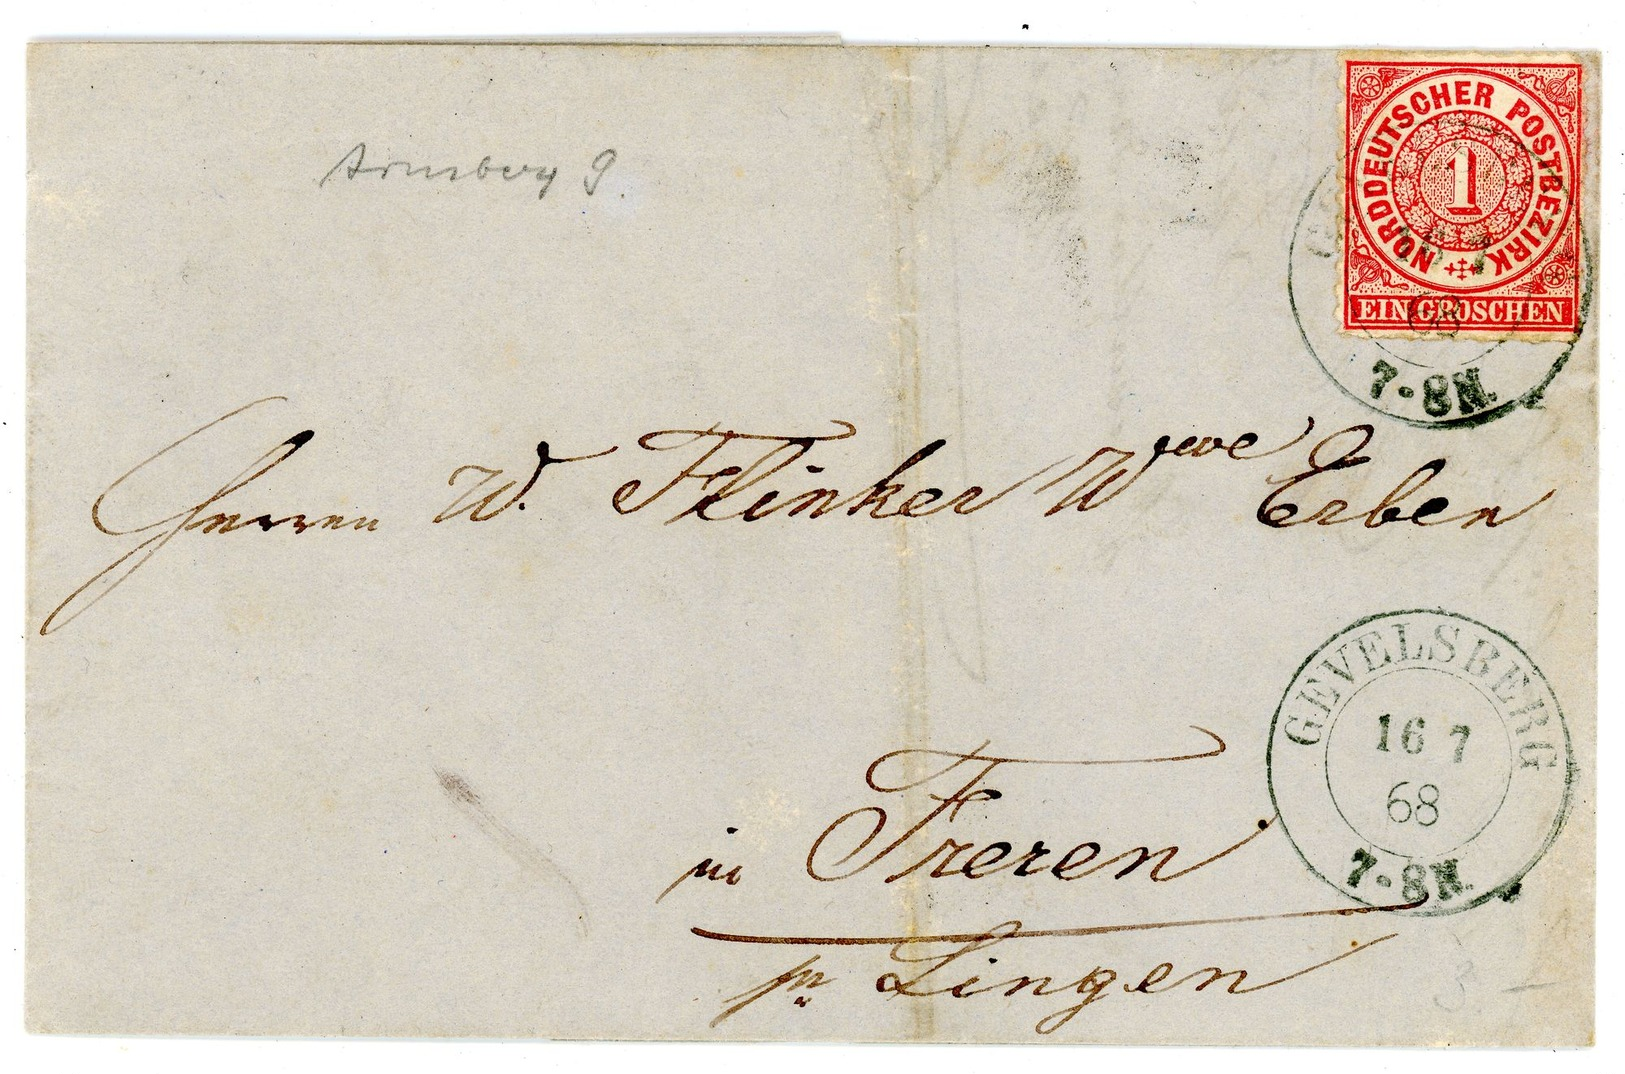 Arnsberg 9.
NORDDEUTSCHER POSTBEZIRK
1
EIN GROSCHEN
16 7
68
7-8N.
Herren W. Flinker Wwe Erben
GEVELSBERG
16 7
68
7-8N.
in Freren
pr Lingen
3.-